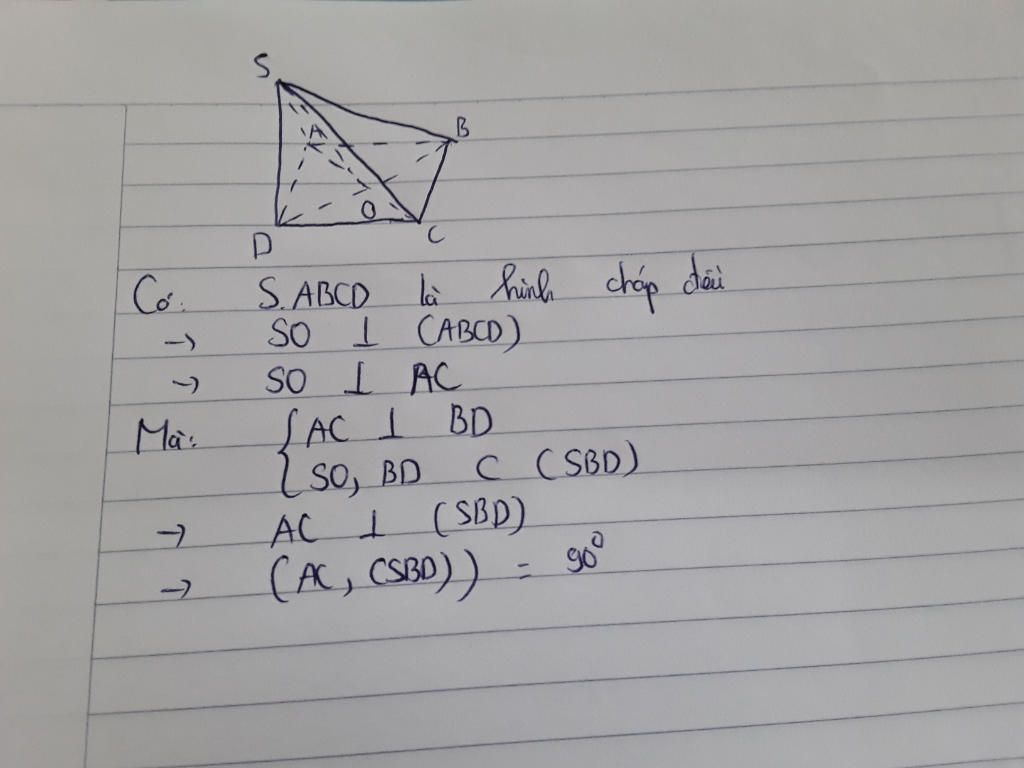 S
A
B
O
D
C
Có: S.ABCD là hình chóp đều
→ SO ⊥ (ABCD)
→ SO ⊥ AC
Mà: { AC ⊥ BD
SO, BD ⊂ (SBD)
→ AC ⊥ (SBD)
→ (AC, (SBD)) = 90⁰